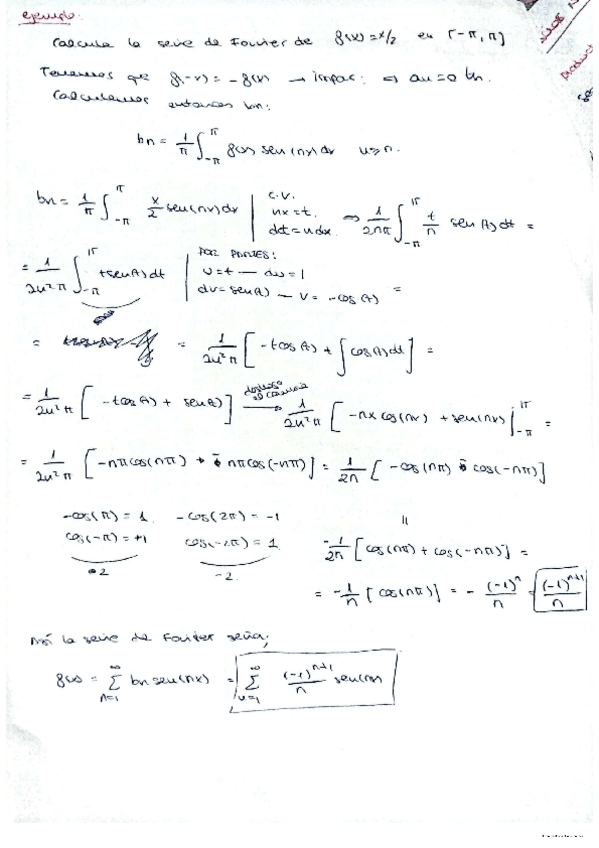 ejemplo.
Calcula la serie de Fourier de f(x)=x/2 en [-π, π]
Tenemos que f(-x) = -f(x) → impar. ⇒ an=0 ∀n.
Calculamos entonces bn:
bn = 1/π ∫_{-π}^{π} f(x) sen(nx)dx n≥1.
bn = 1/π ∫_{-π}^{π} x/2 sen(nx)dx | c.v. nx=t. dt=ndx. ⇒ 1/2nπ ∫_{-π}^{π} t/n sen(t)dt =
= 1/2n²π ∫_{-π}^{π} t sen(t)dt | POR PARTES: u=t — du=1 dv=sen(t) — v=-cos(t) =
= = 1/2n²π [-tcos(t) + ∫cos(t)dt] =
= 1/2n²π [-tcos(t) + sen(t)] deshago el cambio → 1/2n²π [-nx cos(nx) + sen(nx)]|_{-π}^{π} =
= 1/2n²π [-nπcos(nπ) - nπcos(-nπ)] = 1/2n [-cos(nπ) - cos(-nπ)]
-cos(π) = 1 -cos(2π) = -1 =
cos(-π) = +1 cos(-2π) = 1 -1/2n [cos(nπ) + cos(-nπ)] =
2 -2
= -1/n [cos(nπ)] = - (-1)^n/n = (-1)^{n+1}/n
Así la serie de Fourier sería;
f(x) = Σ_{n=1}^{∞} bn sen(nx) = Σ_{n=1}^{∞} (-1)^{n+1}/n sen(nx)